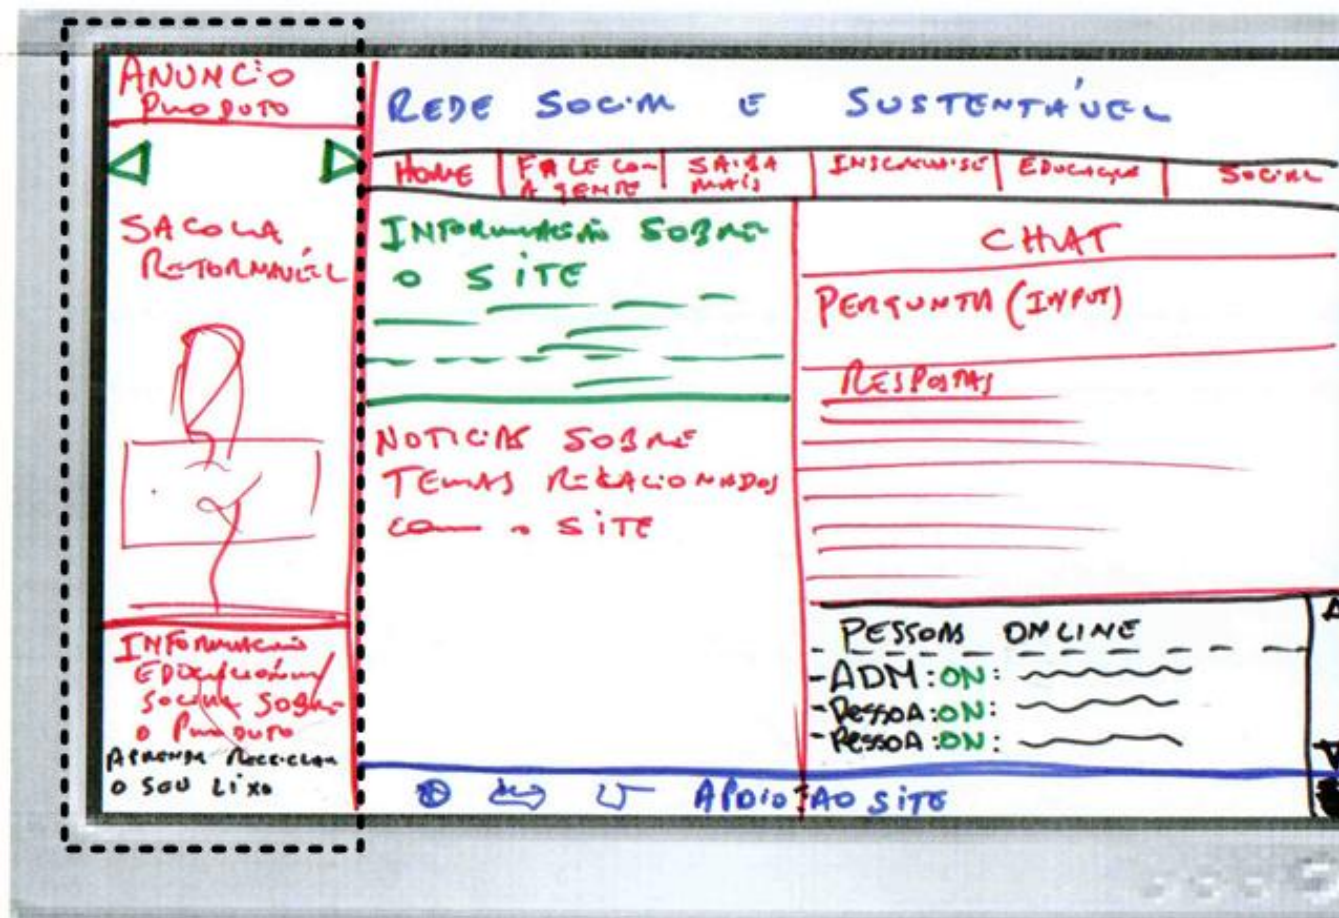 ANUNCIO
PRODUTO
SACOLA
RETORNAVÉL
INFORMACÕES
EDUCACIONAL/
SOCIAL SOBRE
O PRODUTO
APRENDA RECICLAR
O SEU LIXO
REDE SOCIAL E SUSTENTÁVEL
HOME
FALE COM
A GENTE
SAIBA
MAIS
INSCREVA-SE
EDUCAÇÃO
SOCIAL
INFORMAÇÃO SOBRE
O SITE
NOTICIAS SOBRE
TEMAS RELACIONADOS
COM O SITE
CHAT
PERGUNTA (INPUT)
RESPOSTAS
PESSOAS ONLINE
-ADM:ON:
-PESSOA:ON:
-PESSOA:ON:
APOIO AO SITE